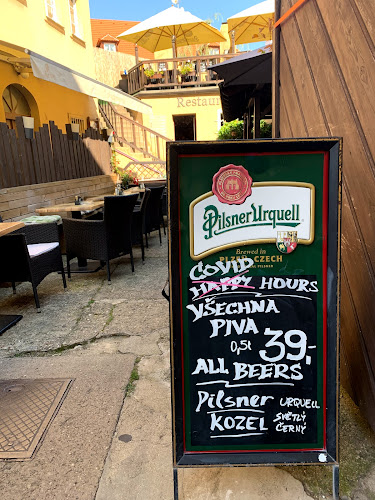 Restaur
Pilsner Urquell
Brewed in
PLZEŇ, CZECH
PILSENER
COVID
HAPPY HOURS
VŠECHNA
PIVA
0,5l 39,-
ALL BEERS
Pilsner URQUELL
KOZEL SVĚTLÝ
ČERNÝ